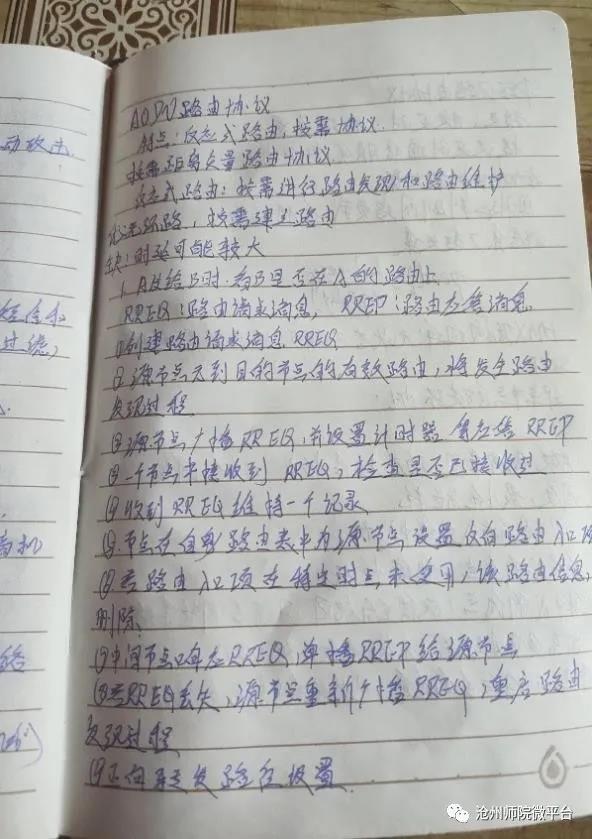 动攻击.
AODV路由协议
特点:反应式路由,按需协议.
按需距离矢量路由协议.
反应式路由:按需进行路由发现和路由维护
优:无环路,按需建立路由
缺:时延可能较大
1. A发给B时.看B是否在A的路由上
RREQ:路由请求消息, RREP:路由应答消息
①创建路由请求消息RREQ
②源节点无到目的节点的有效路由,将发生路由
发现过程
③源节点广播RREQ,并设置计时器 等应答RREP
④一个节点未接收到 RREQ,检查是否已接收过
⑤收到RREQ维持一个记录
⑥.节点在自身路由表中为源节点设置反向路由入口项
⑦若路由入口项在特定时间未使用,该路由信息,
删除.
中间节点响应RREQ,单播RREP给源节点
若RREQ丢失,源节点重新广播RREQ,重启路由
发现过程
正向转发路径设置.
沧州师院微平台